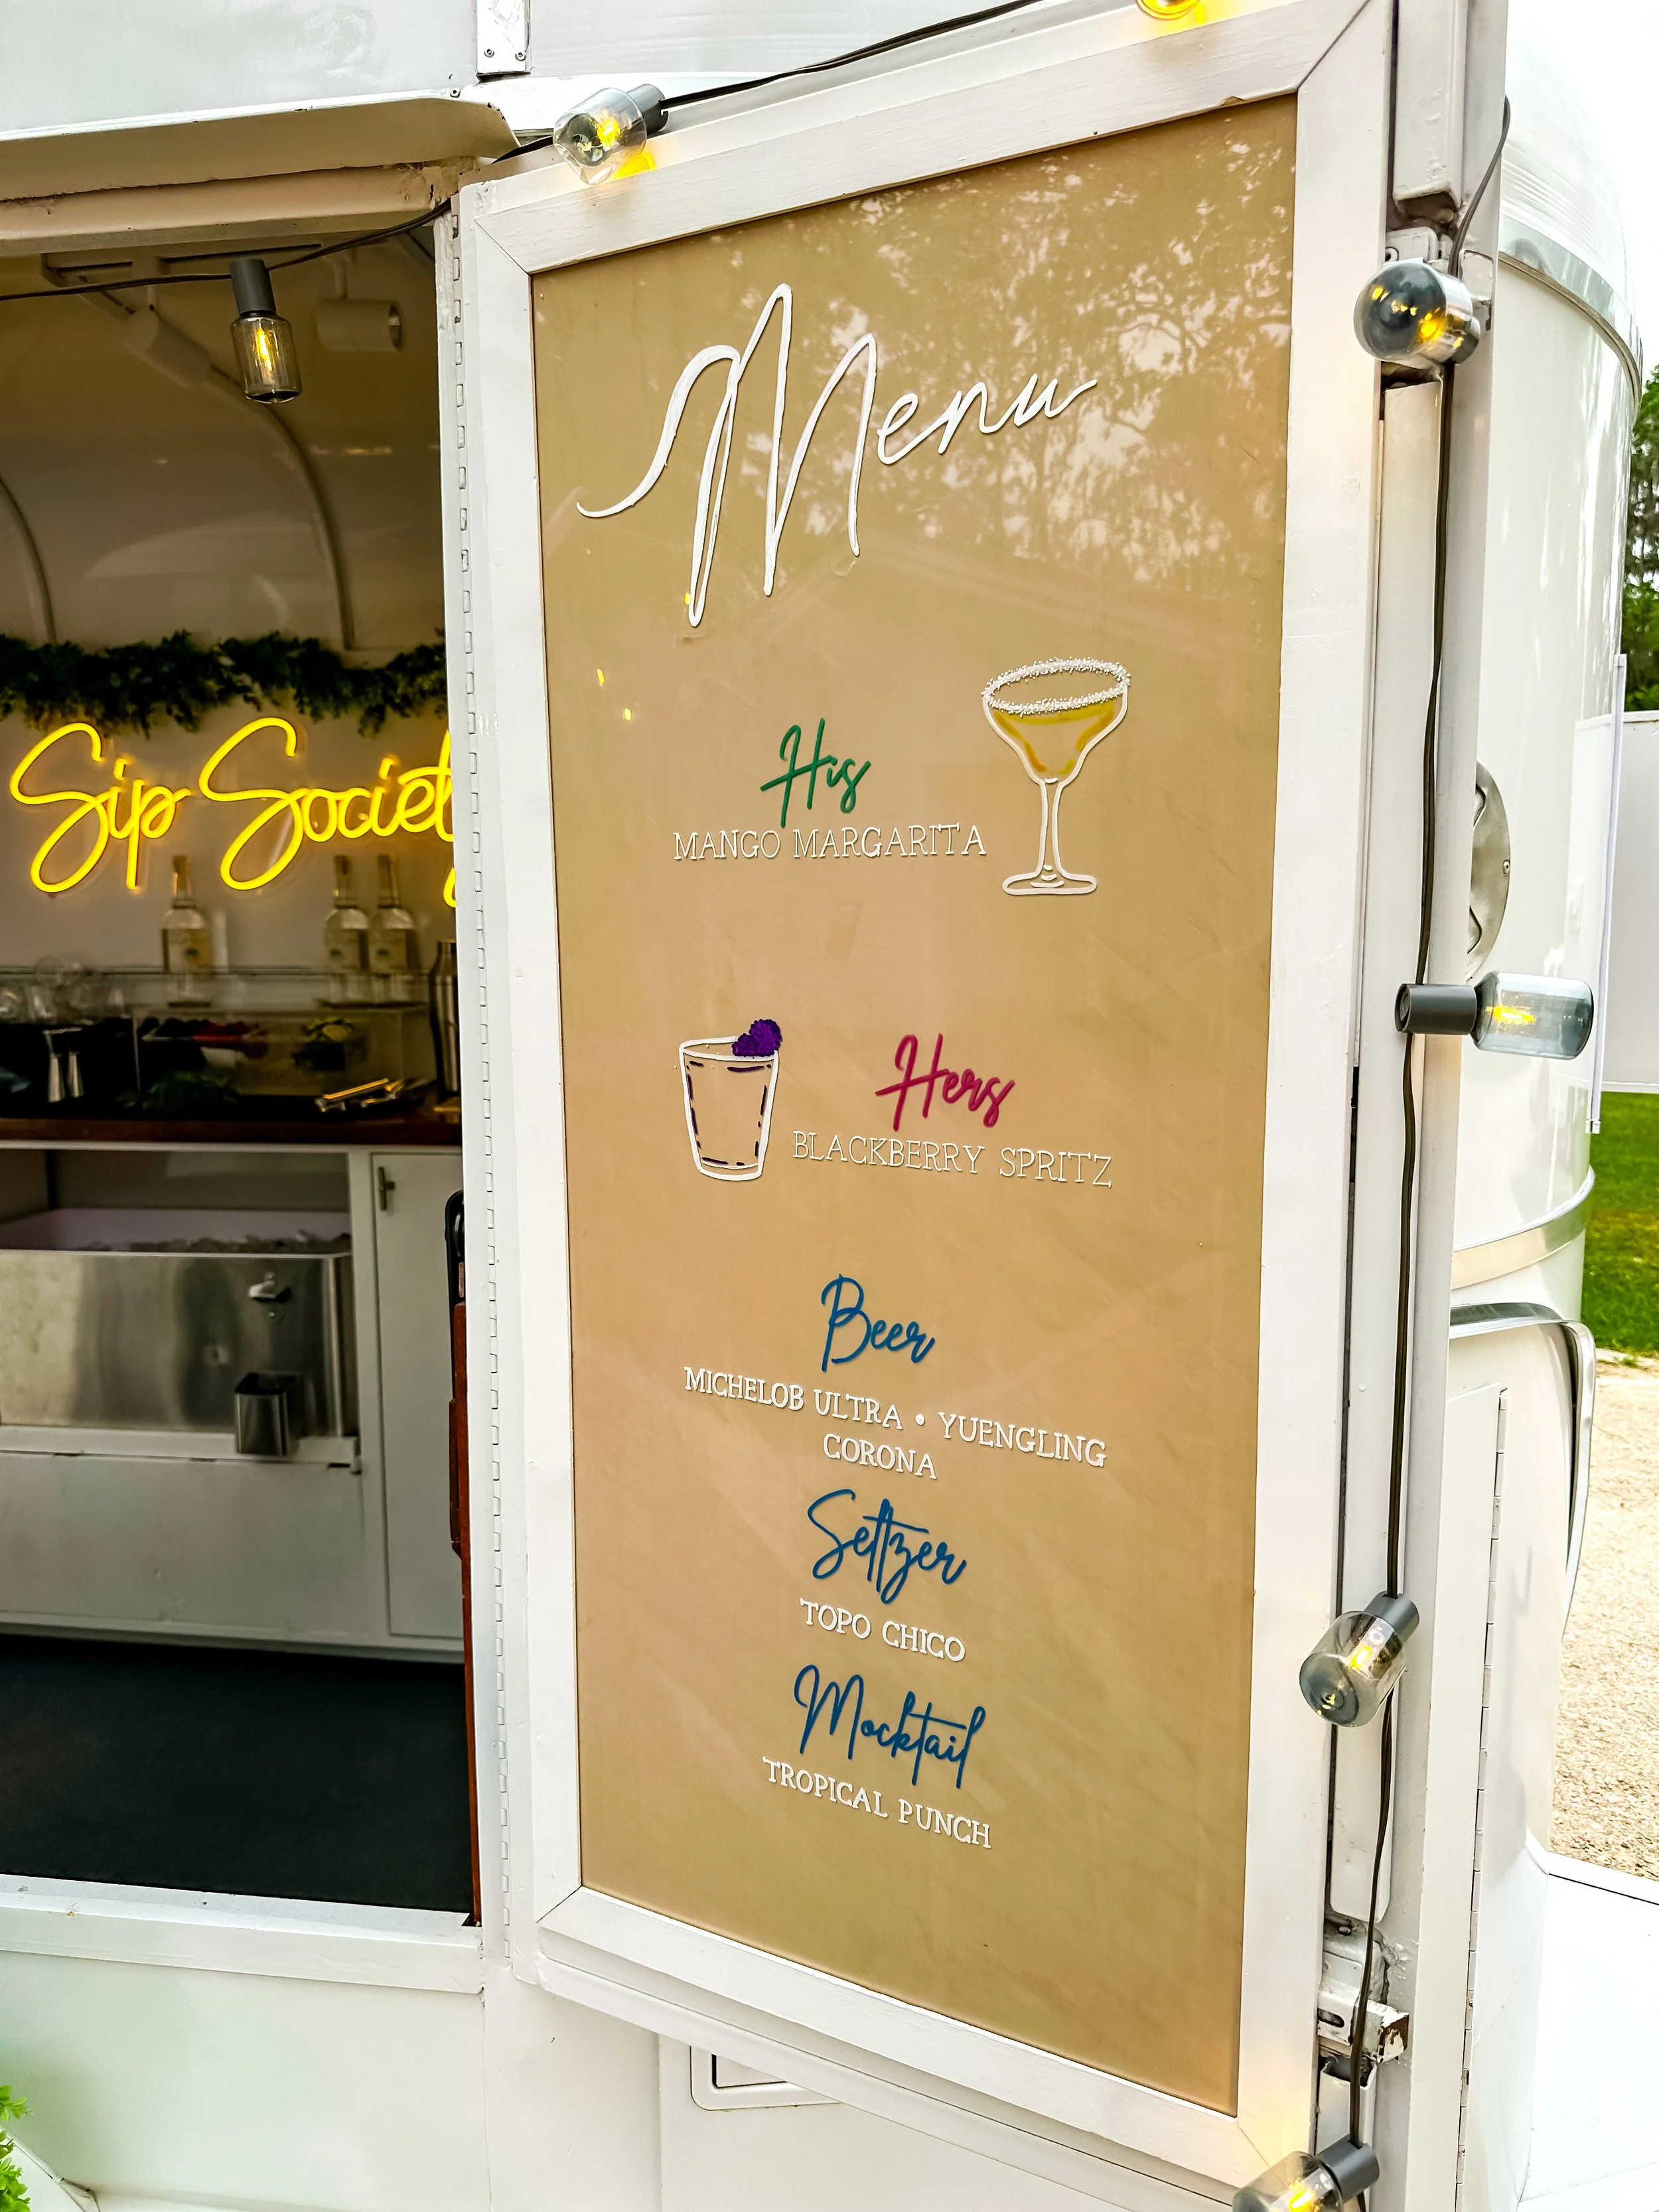 Sip Society
Menu
His
MANGO MARGARITA
Hers
BLACKBERRY SPRITZ
Beer
MICHELOB ULTRA • YUENGLING
CORONA
Seltzer
TOPO CHICO
Mocktail
TROPICAL PUNCH